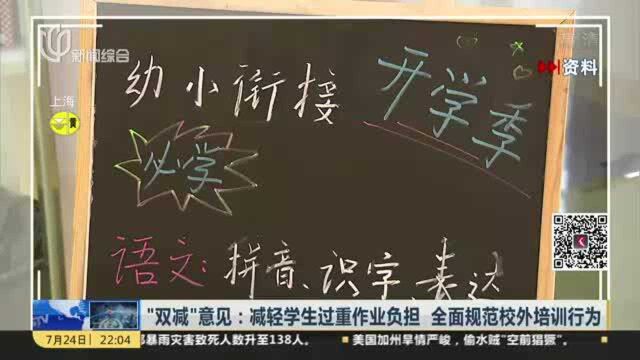 新闻综合
资料
上海
幼小衔接 开学季
必学
语文：拼音、识字、表达
"双减"意见：减轻学生过重作业负担 全面规范校外培训行为
7月24日 22:04 郡暴雨灾害致死人数升至138人。 ■ 美国加州旱情严峻，偷水贼"空前猖獗"。